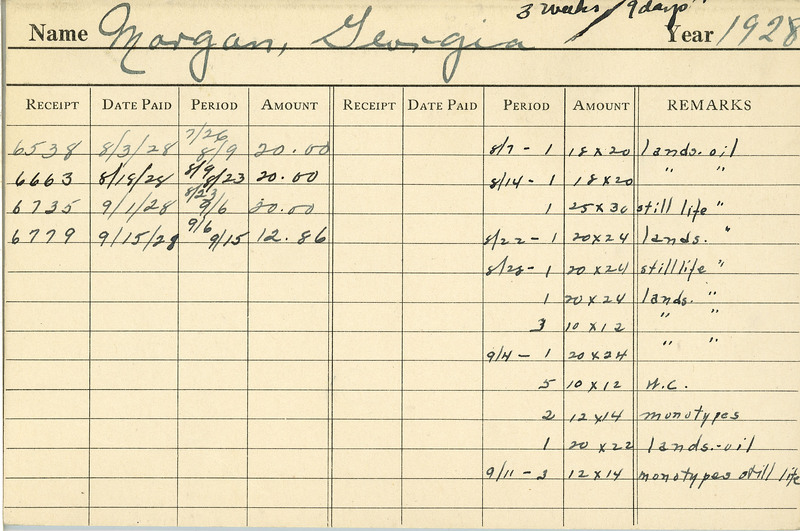 3 weeks / 9 days
Name Morgan, Georgia Year 1928
RECEIPT DATE PAID PERIOD AMOUNT RECEIPT DATE PAID PERIOD AMOUNT REMARKS
6538 8/3/28 7/26 8/9 20.00 8/7 - 1 18 x 20 lands. oil
6663 8/18/28 8/9 8/23 20.00 8/14 - 1 18 x 20 " "
6735 9/1/28 8/23 9/6 20.00 1 25 x 30 still life "
6779 9/15/28 9/6 9/15 12.86 8/22 - 1 20 x 24 lands. "
8/28 - 1 20 x 24 still life "
1 20 x 24 lands. "
3 10 x 12 " "
9/4 - 1 20 x 24 " "
5 10 x 12 W.C.
2 12 x 14 monotypes
1 20 x 22 lands.-oil
9/11 - 3 12 x 14 monotypes still life